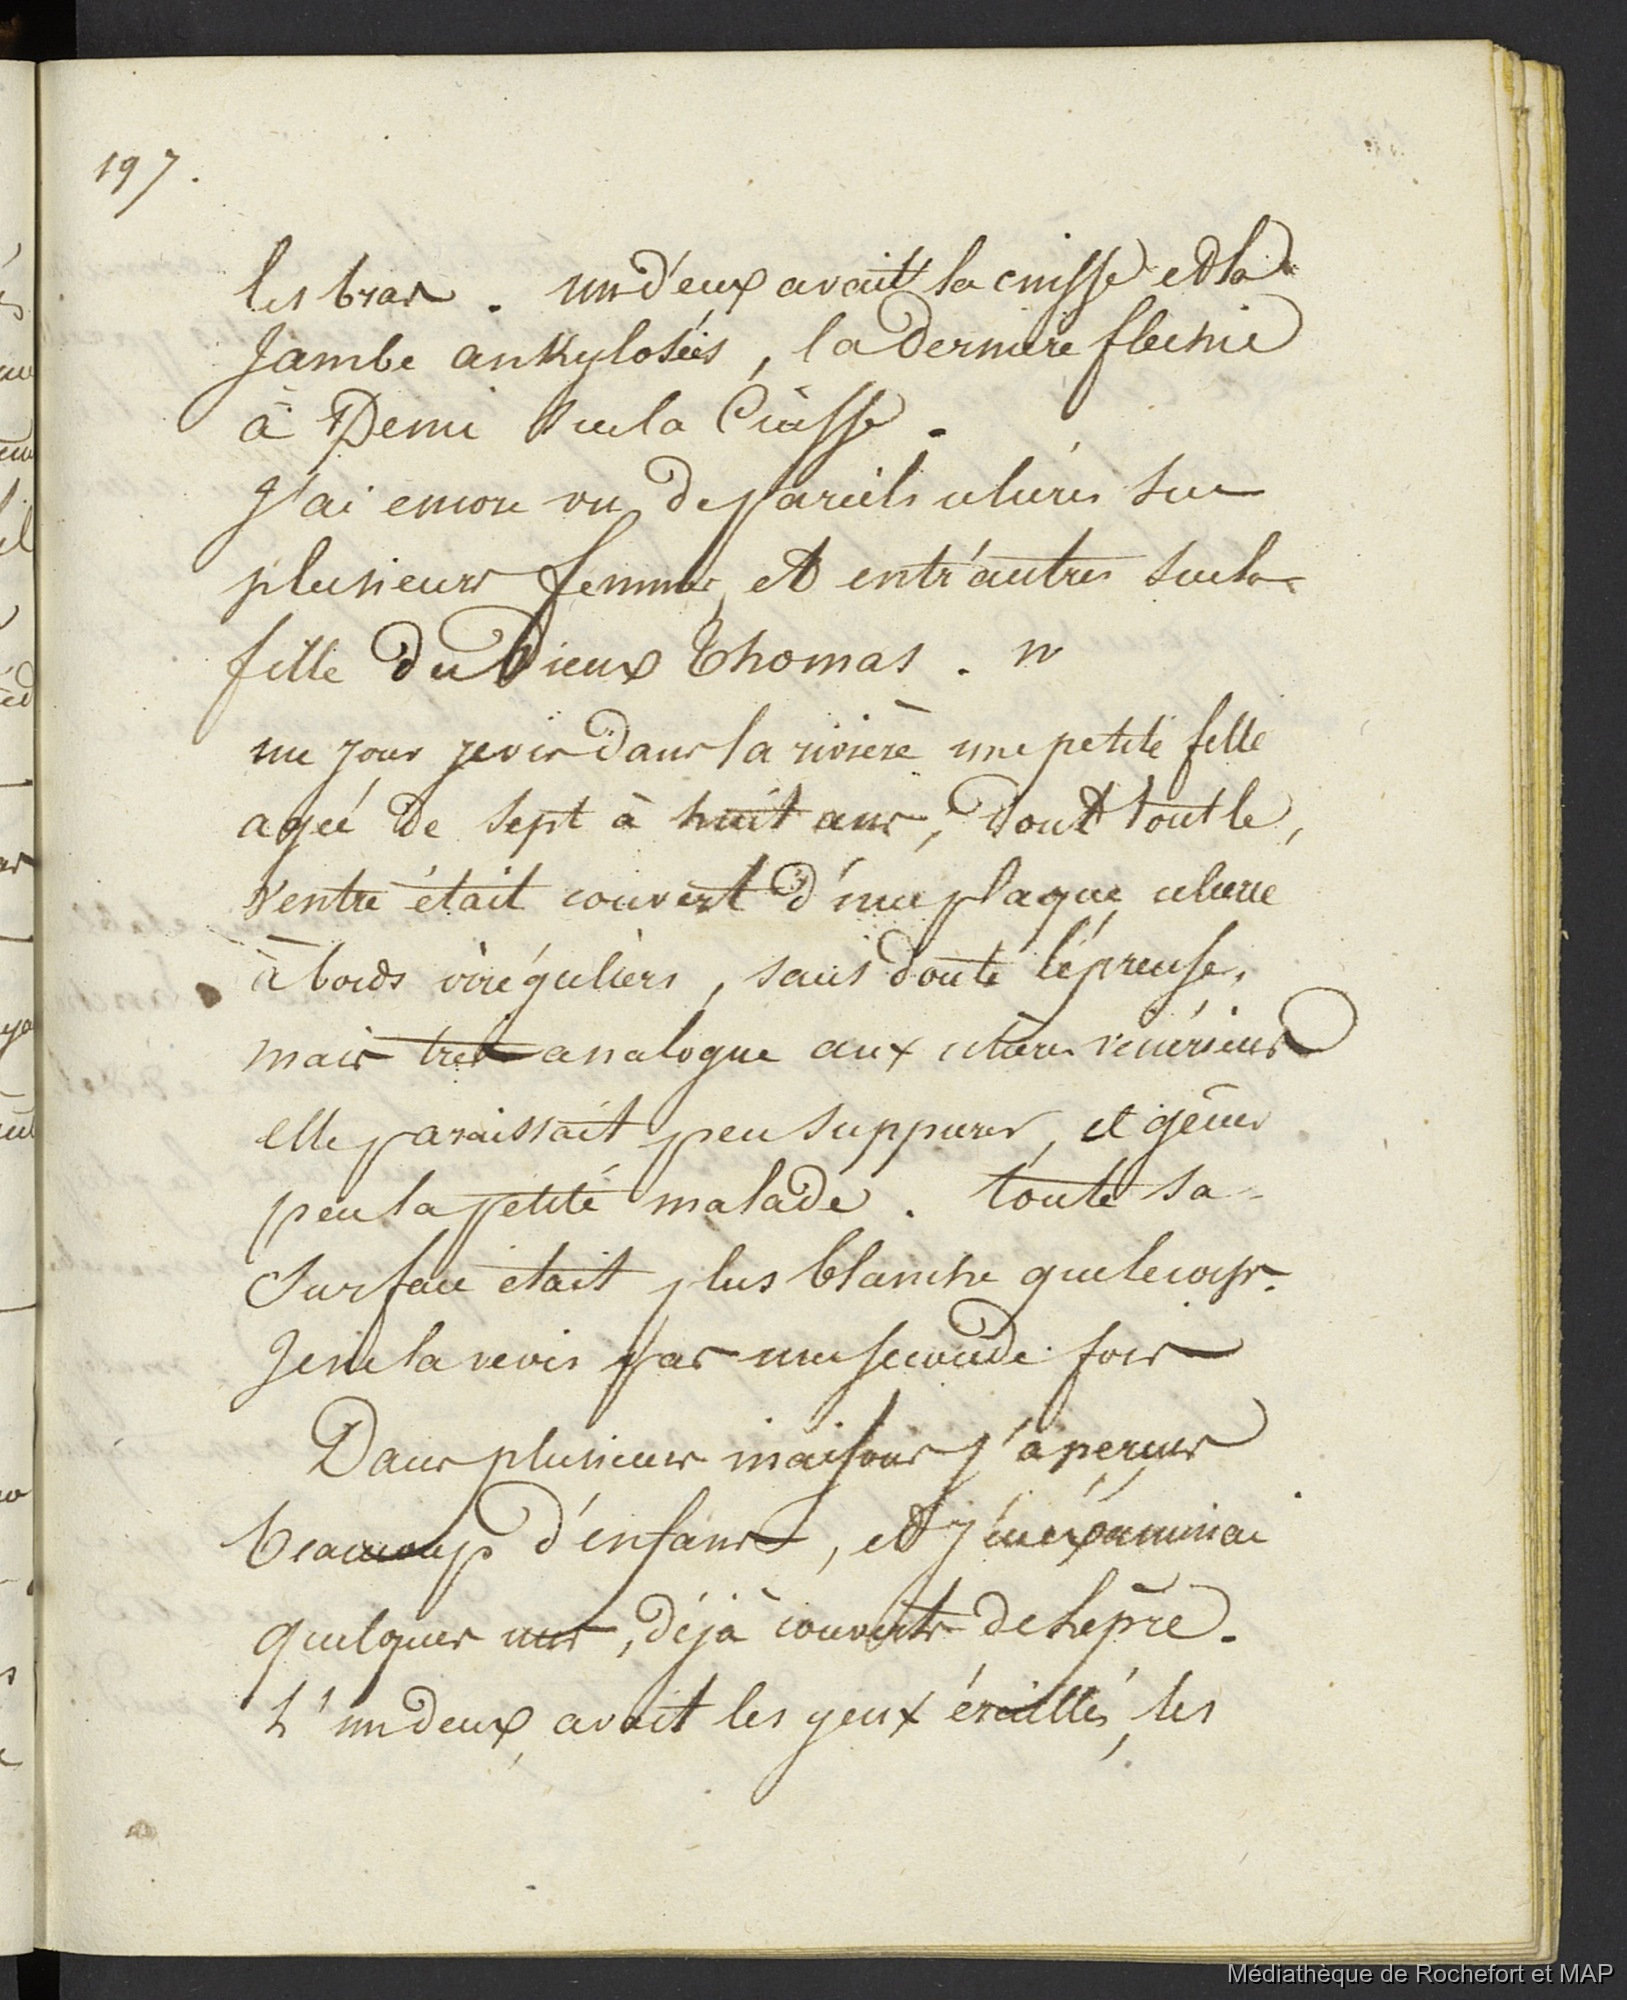 197.
les bras. un d'eux avait la cuisse et la
Jambe ankylosées, la derniere flechie
à Demi sur la Cuisse.
J'ai encore vu de pareils ulcéres sur
plusieurs femmes, et entr'autres sur la
fille du Vieux Thomas.
un jour je vis dans la rivière une petite fille
agée de sept à huit ans, dont tout le,
ventre était couvert d'une plaque ulcerée
à bords irréguliers, sans doute lépreuse,
mais très analogue aux ulcères vénériens
elle paraissait peu suppurer, et gêner
peu la petite malade. toute sa
Surface était plus blanche que le corps.
Je ne la revis pas une seconde fois
Dans plusieurs maisons j'aperçus
beaucoup d'enfants, et j'en éxaminai
quelques uns, déjà couverts de Lépre.
L'un deux, avait les yeux éraillés, les
Médiathèque de Rochefort et MAP